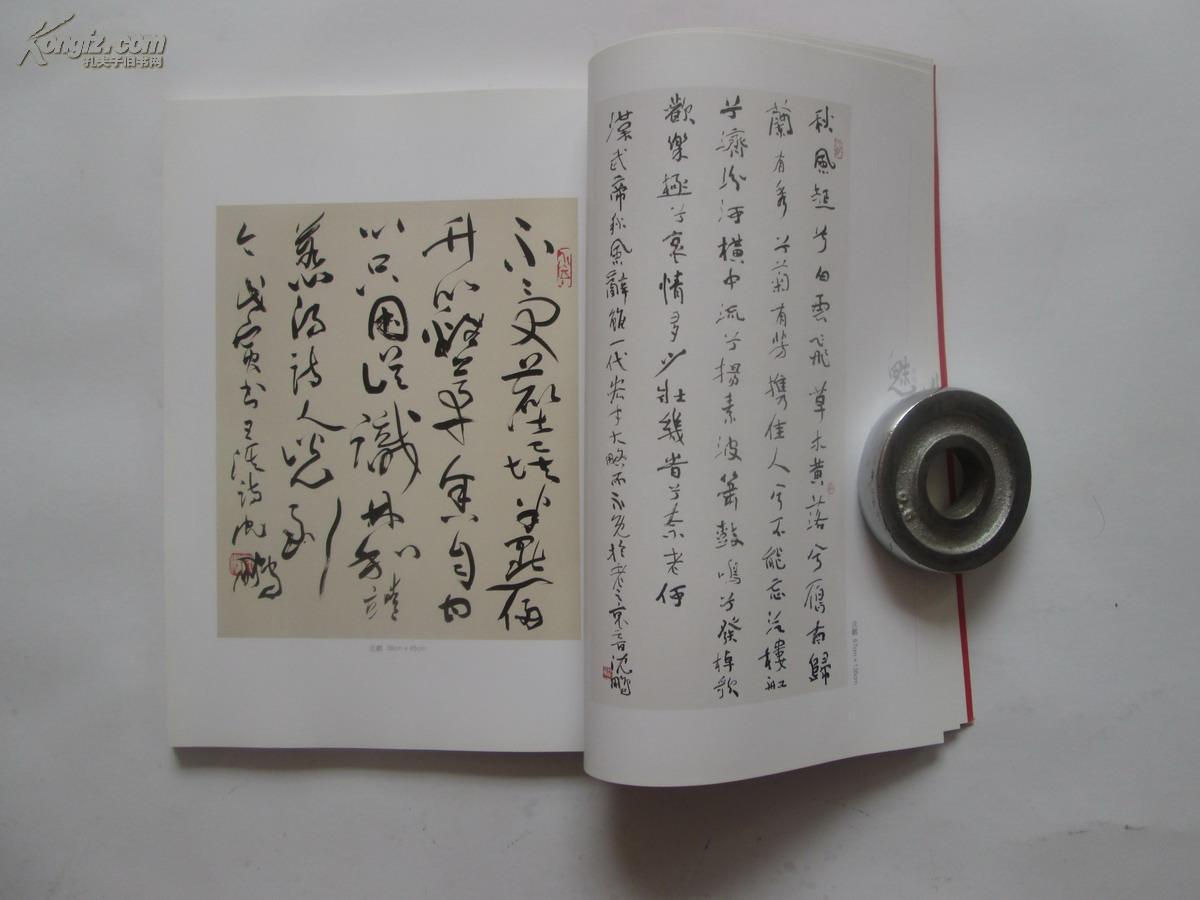 Kongfz.com
孔夫子旧书网
秋風起兮白雲飛草木黄落兮雁南歸
蘭有秀兮菊有芳攜佳人兮不能忘泛樓船
兮濟汾河橫中流兮揚素波簫鼓鳴兮發棹歌
歡樂極兮哀情多少壯幾时兮奈老何
漢武帝秋風辭雖一代宏才大略而不免於老之哀音沈鵬
不受塵埃半點侵
竹籬茅舍自甘
心只因誤識林和靖
惹得詩人說到
今戊寅书王淇詩沈鵬
沈鹏
魅